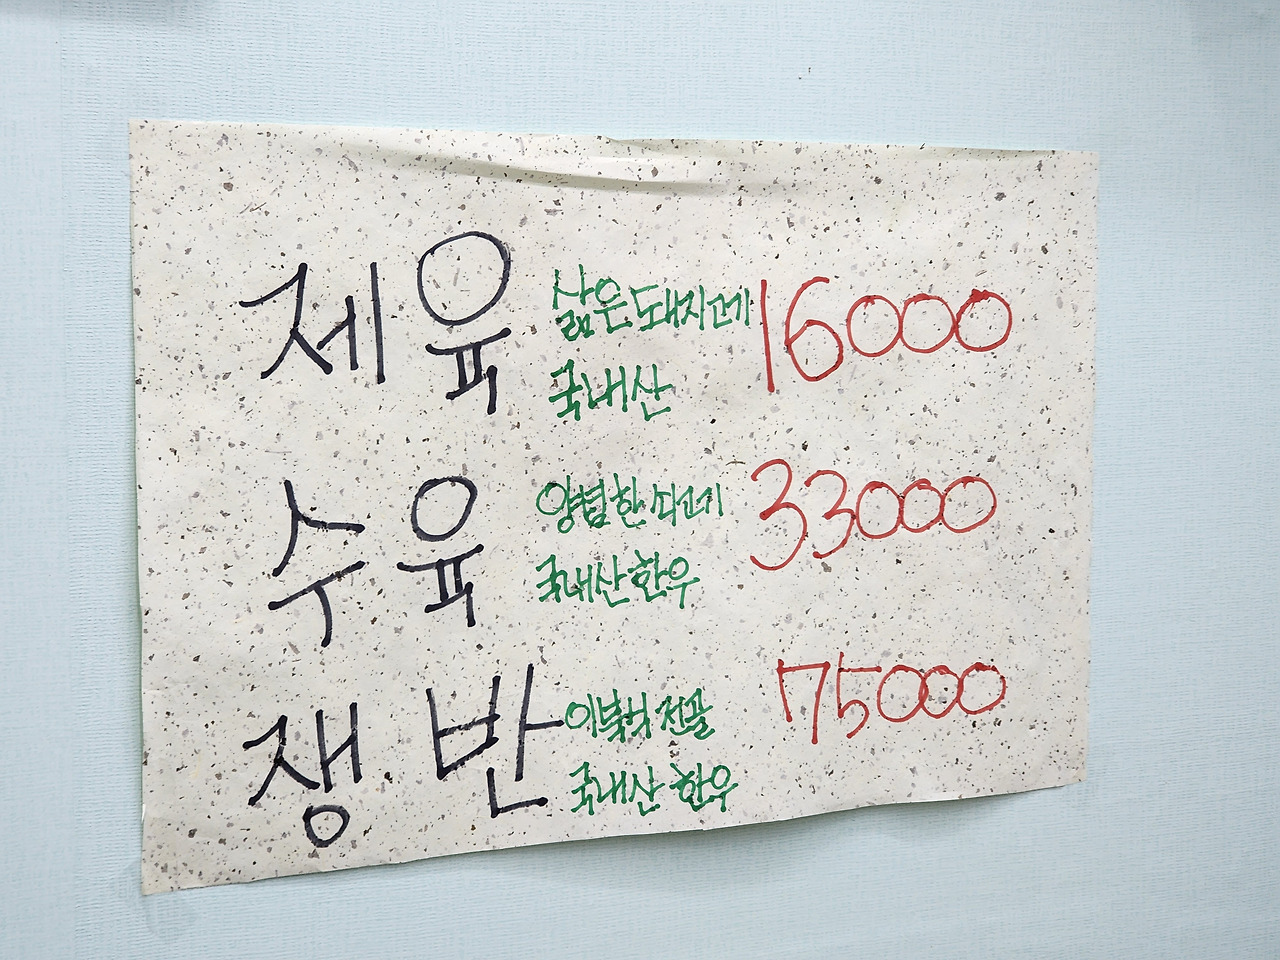 제육 삶은 돼지고기 16000
국내산
수육 양념한 사고기 33000
국내산 한우
쟁반 이북식 전골 75000
국내산 한우